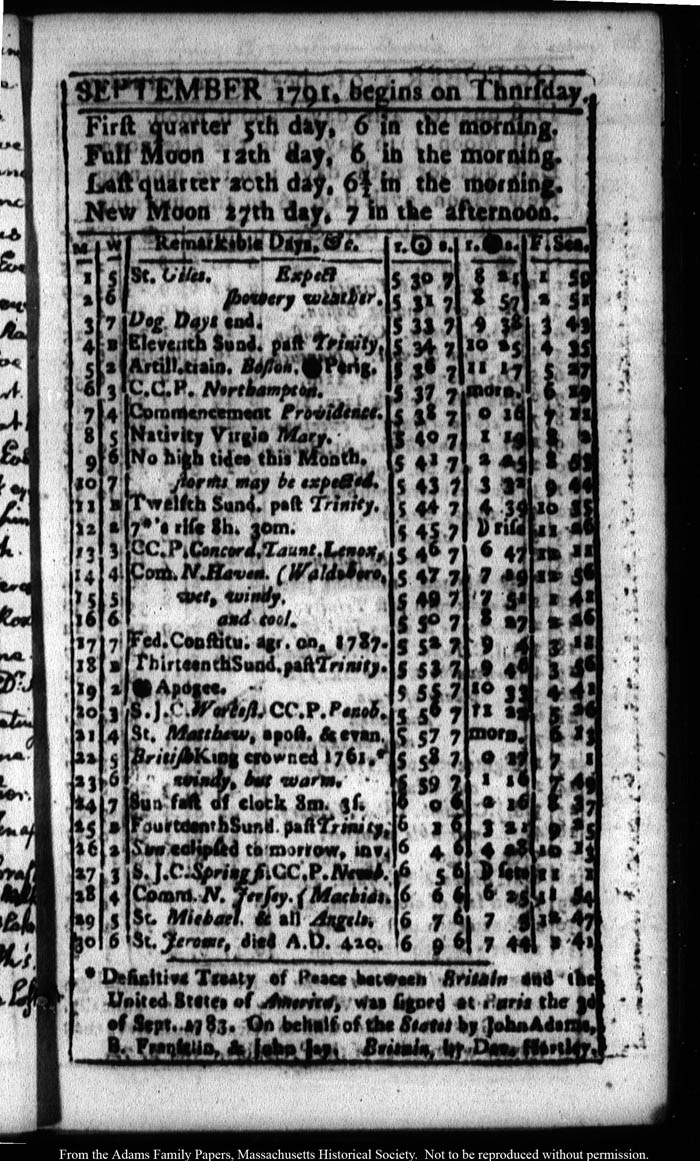 SEPTEMBER 1791, begins on Thursday.
First quarter 5th day, 6 in the morning.
Full Moon 12th day, 6 in the morning.
Last quarter 20th day, 6½ in the morning.
New Moon 27th day, 7 in the afternoon.
M W Remarkable Days, &c. r. ☉ s. r. ● s. F. Sea.
1 5 St. Giles. Expect 5 30 7 8 25 1 59
2 6 showery weather. 5 31 7 8 57 2 51
3 7 Dog Days end. 5 33 7 9 38 3 43
4 Eleventh Sund. past Trinity, 5 34 7 10 25 4 35
5 2 Artill. train. Boston. ● Perig. 5 36 7 11 17 5 27
6 3 C.C.P. Northampton. 5 37 7 morn. 6 19
7 4 Commencement Providence. 5 38 7 0 16 7 11
8 5 Nativity Virgin Mary. 5 40 7 1 19 8
9 6 No high tides this Month. 5 41 7 2 25 8 53
10 7 storms may be expected. 5 43 7 3 32 9 44
11 Twelfth Sund. past Trinity. 5 44 7 4 39 10 35
12 2 7*'s rise 8h. 30m. 5 45 7 D rise 11 26
13 3 CC.P. Concord. Taunt. Lenox, 5 46 7 6 47 12 11
14 4 Com. N. Haven. (Waldoboro, 5 47 7 7 19 12 56
15 5 wet, windy. 5 49 7 7 51 1 41
16 6 and cool. 5 50 7 8 27 2 26
17 7 Fed. Constitu. agr. on, 1787. 5 52 7 9 4 3 11
18 Thirteenth Sund. past Trinity. 5 53 7 9 46 3 56
19 2 ● Apogee. 5 55 7 10 33 4 41
20 3 S.J.C. Worcest. CC.P. Penob. 5 56 7 11 22 5 26
21 4 St. Matthew, apost. & evan. 5 57 7 morn. 6 13
22 5 British King crowned 1761.* 5 58 7 0 17 7 1
23 6 windy, but warm. 5 59 7 1 16 7 49
24 7 Sun fast of clock 8m. 3s. 6 0 6 2 16 8 37
25 Fourteenth Sund. past Trinity, 6 6 3 21 9 25
26 2 Sun eclipsed to morrow, inv. 6 4 6 4 28 10 13
27 3 S.J.C. Springf. CC.P. Newb. 6 5 6 D sets 11 1
28 4 Comm. N. Jersey. (Machias. 6 6 6 6 25 11 54
29 5 St. Michael. & all Angels. 6 7 6 7 12 47
30 6 St. Jerome, died A.D. 420. 6 9 6 7 44 1 41
* Definitive Treaty of Peace between Britain and the
United States of America, was signed at Paris the 3d
of Sept. 1783. On behalf of the States by John Adams,
B. Franklin, & John Jay. Britain, by Dav. Hartley.
From the Adams Family Papers, Massachusetts Historical Society. Not to be reproduced without permission.